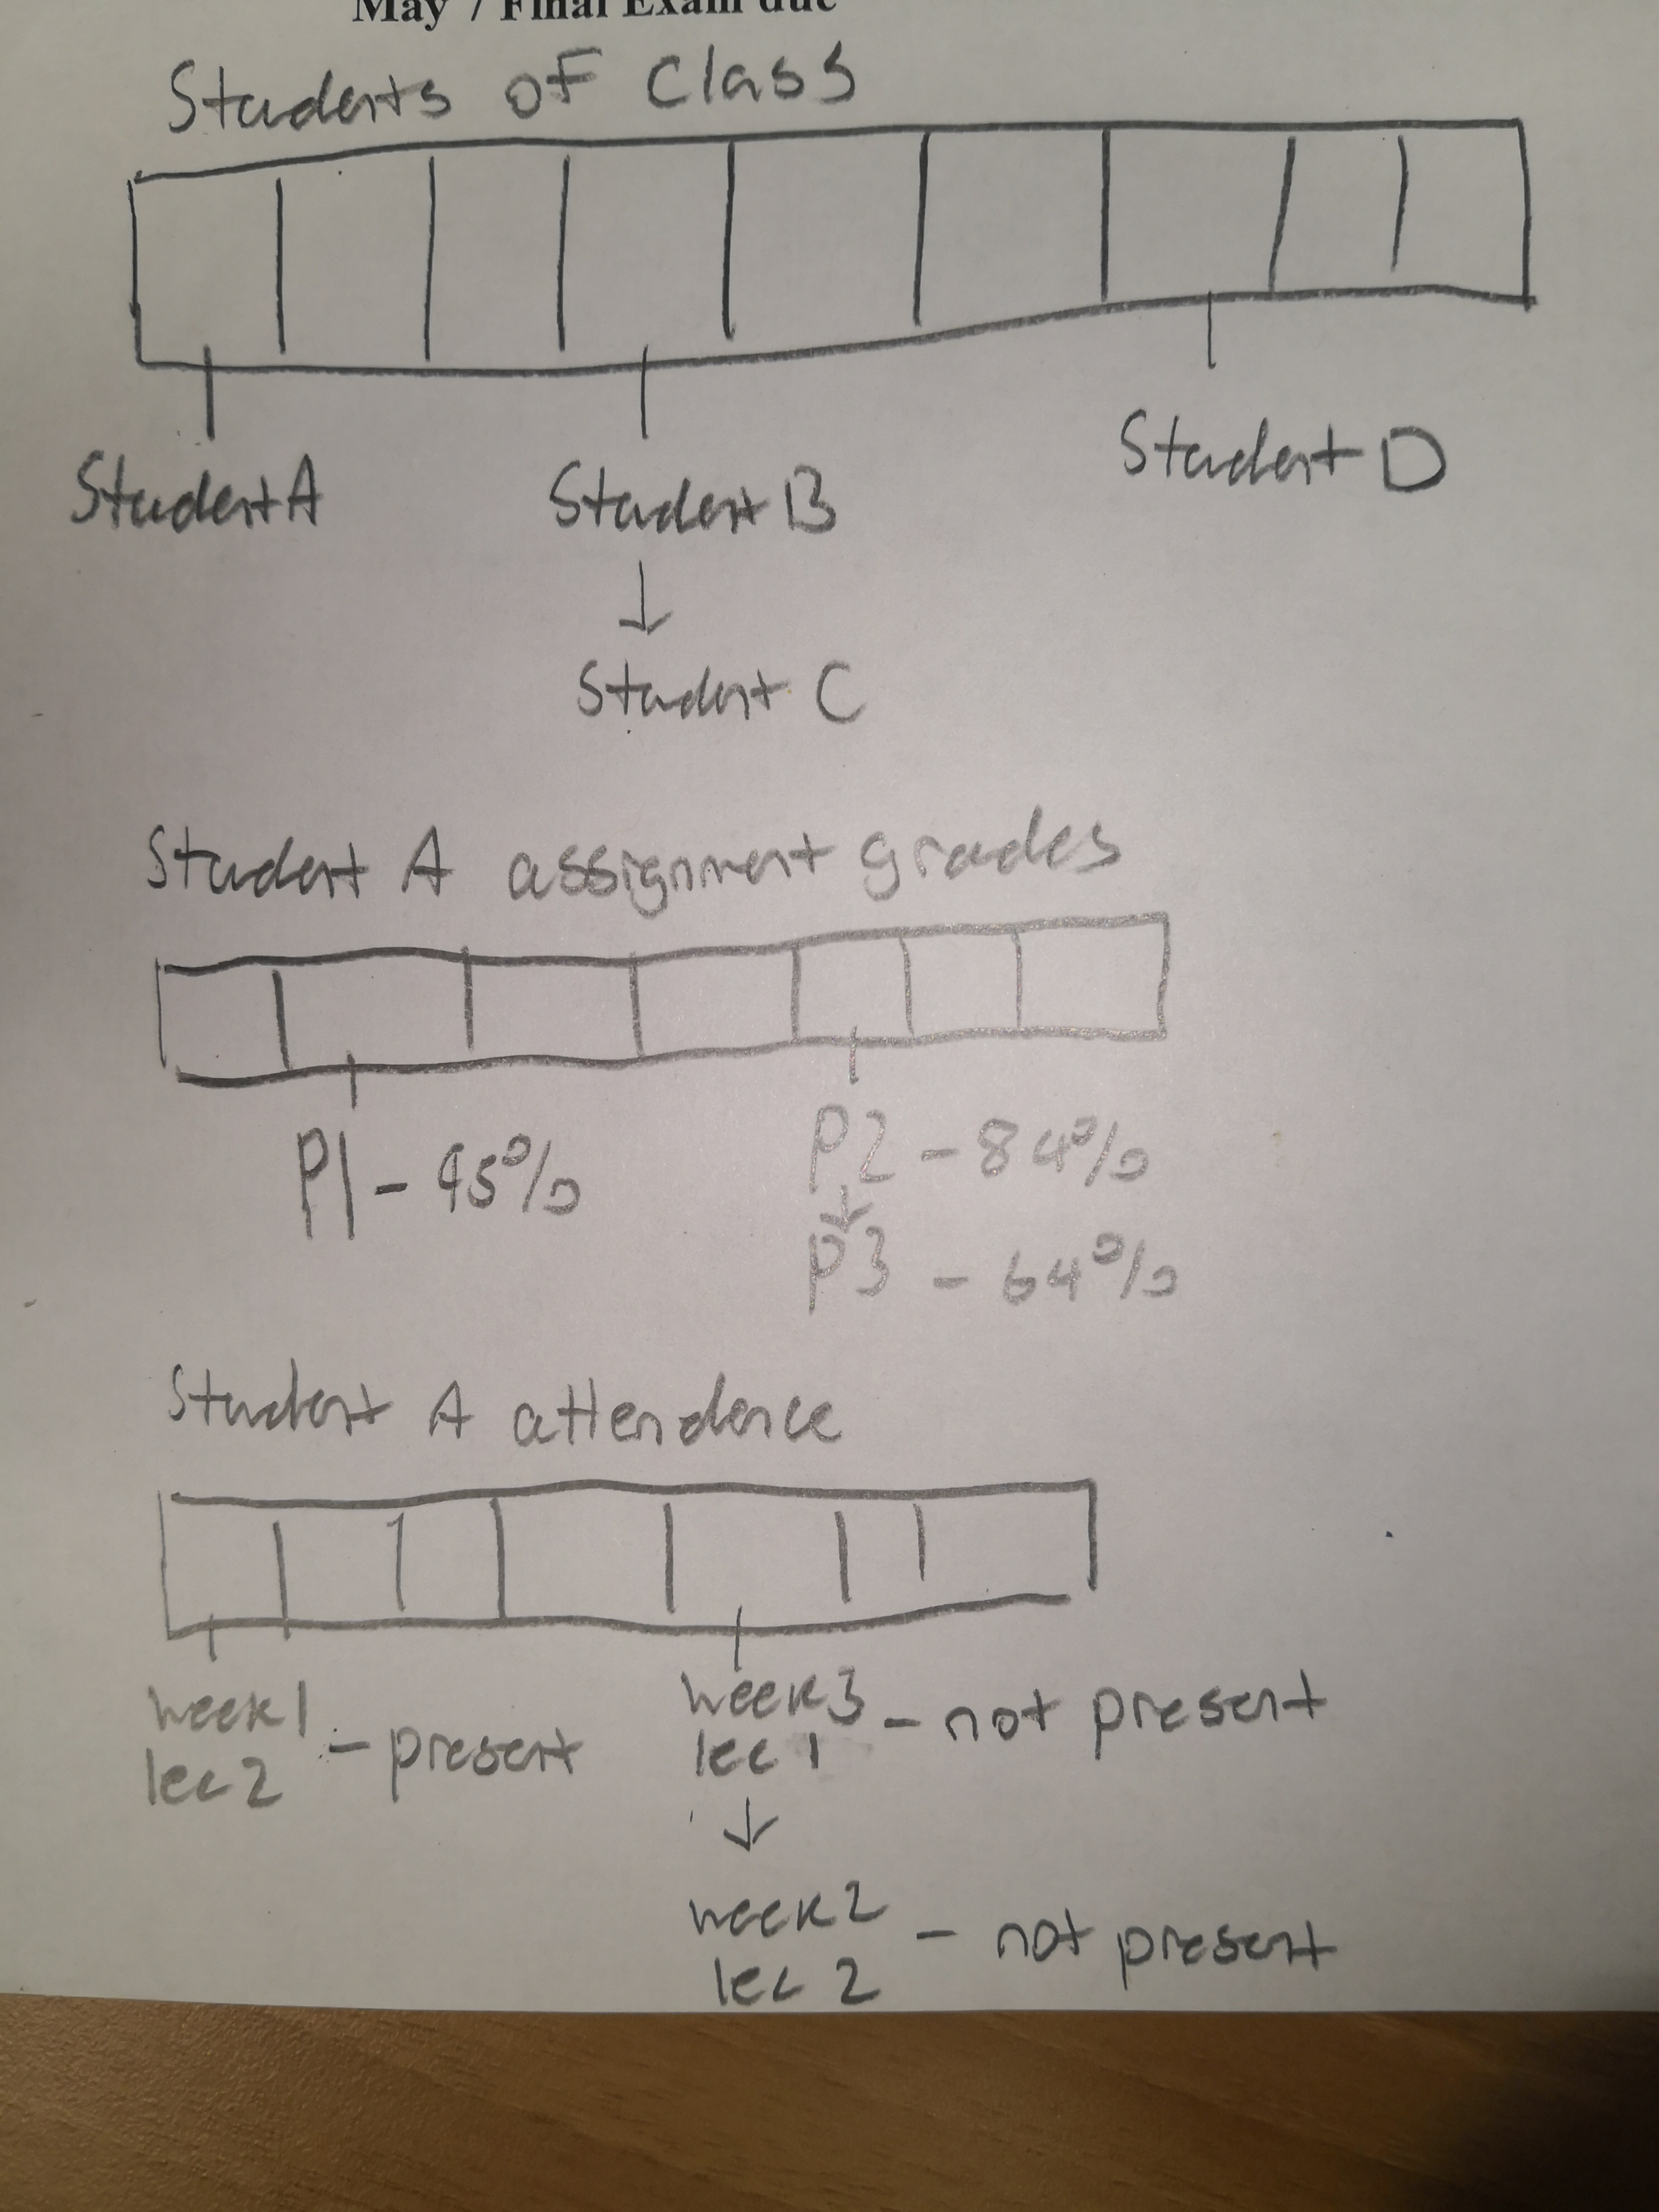 May 7 Final Exam due
Students of Class
Student A
Student B
Student D
Student C
Student A assignment grades
P1 - 95%
P2 - 84%
P3 - 64%
Student A attendence
week1
lec 2 - present
week3
lec 1 - not present
week2
lec 2 - not present